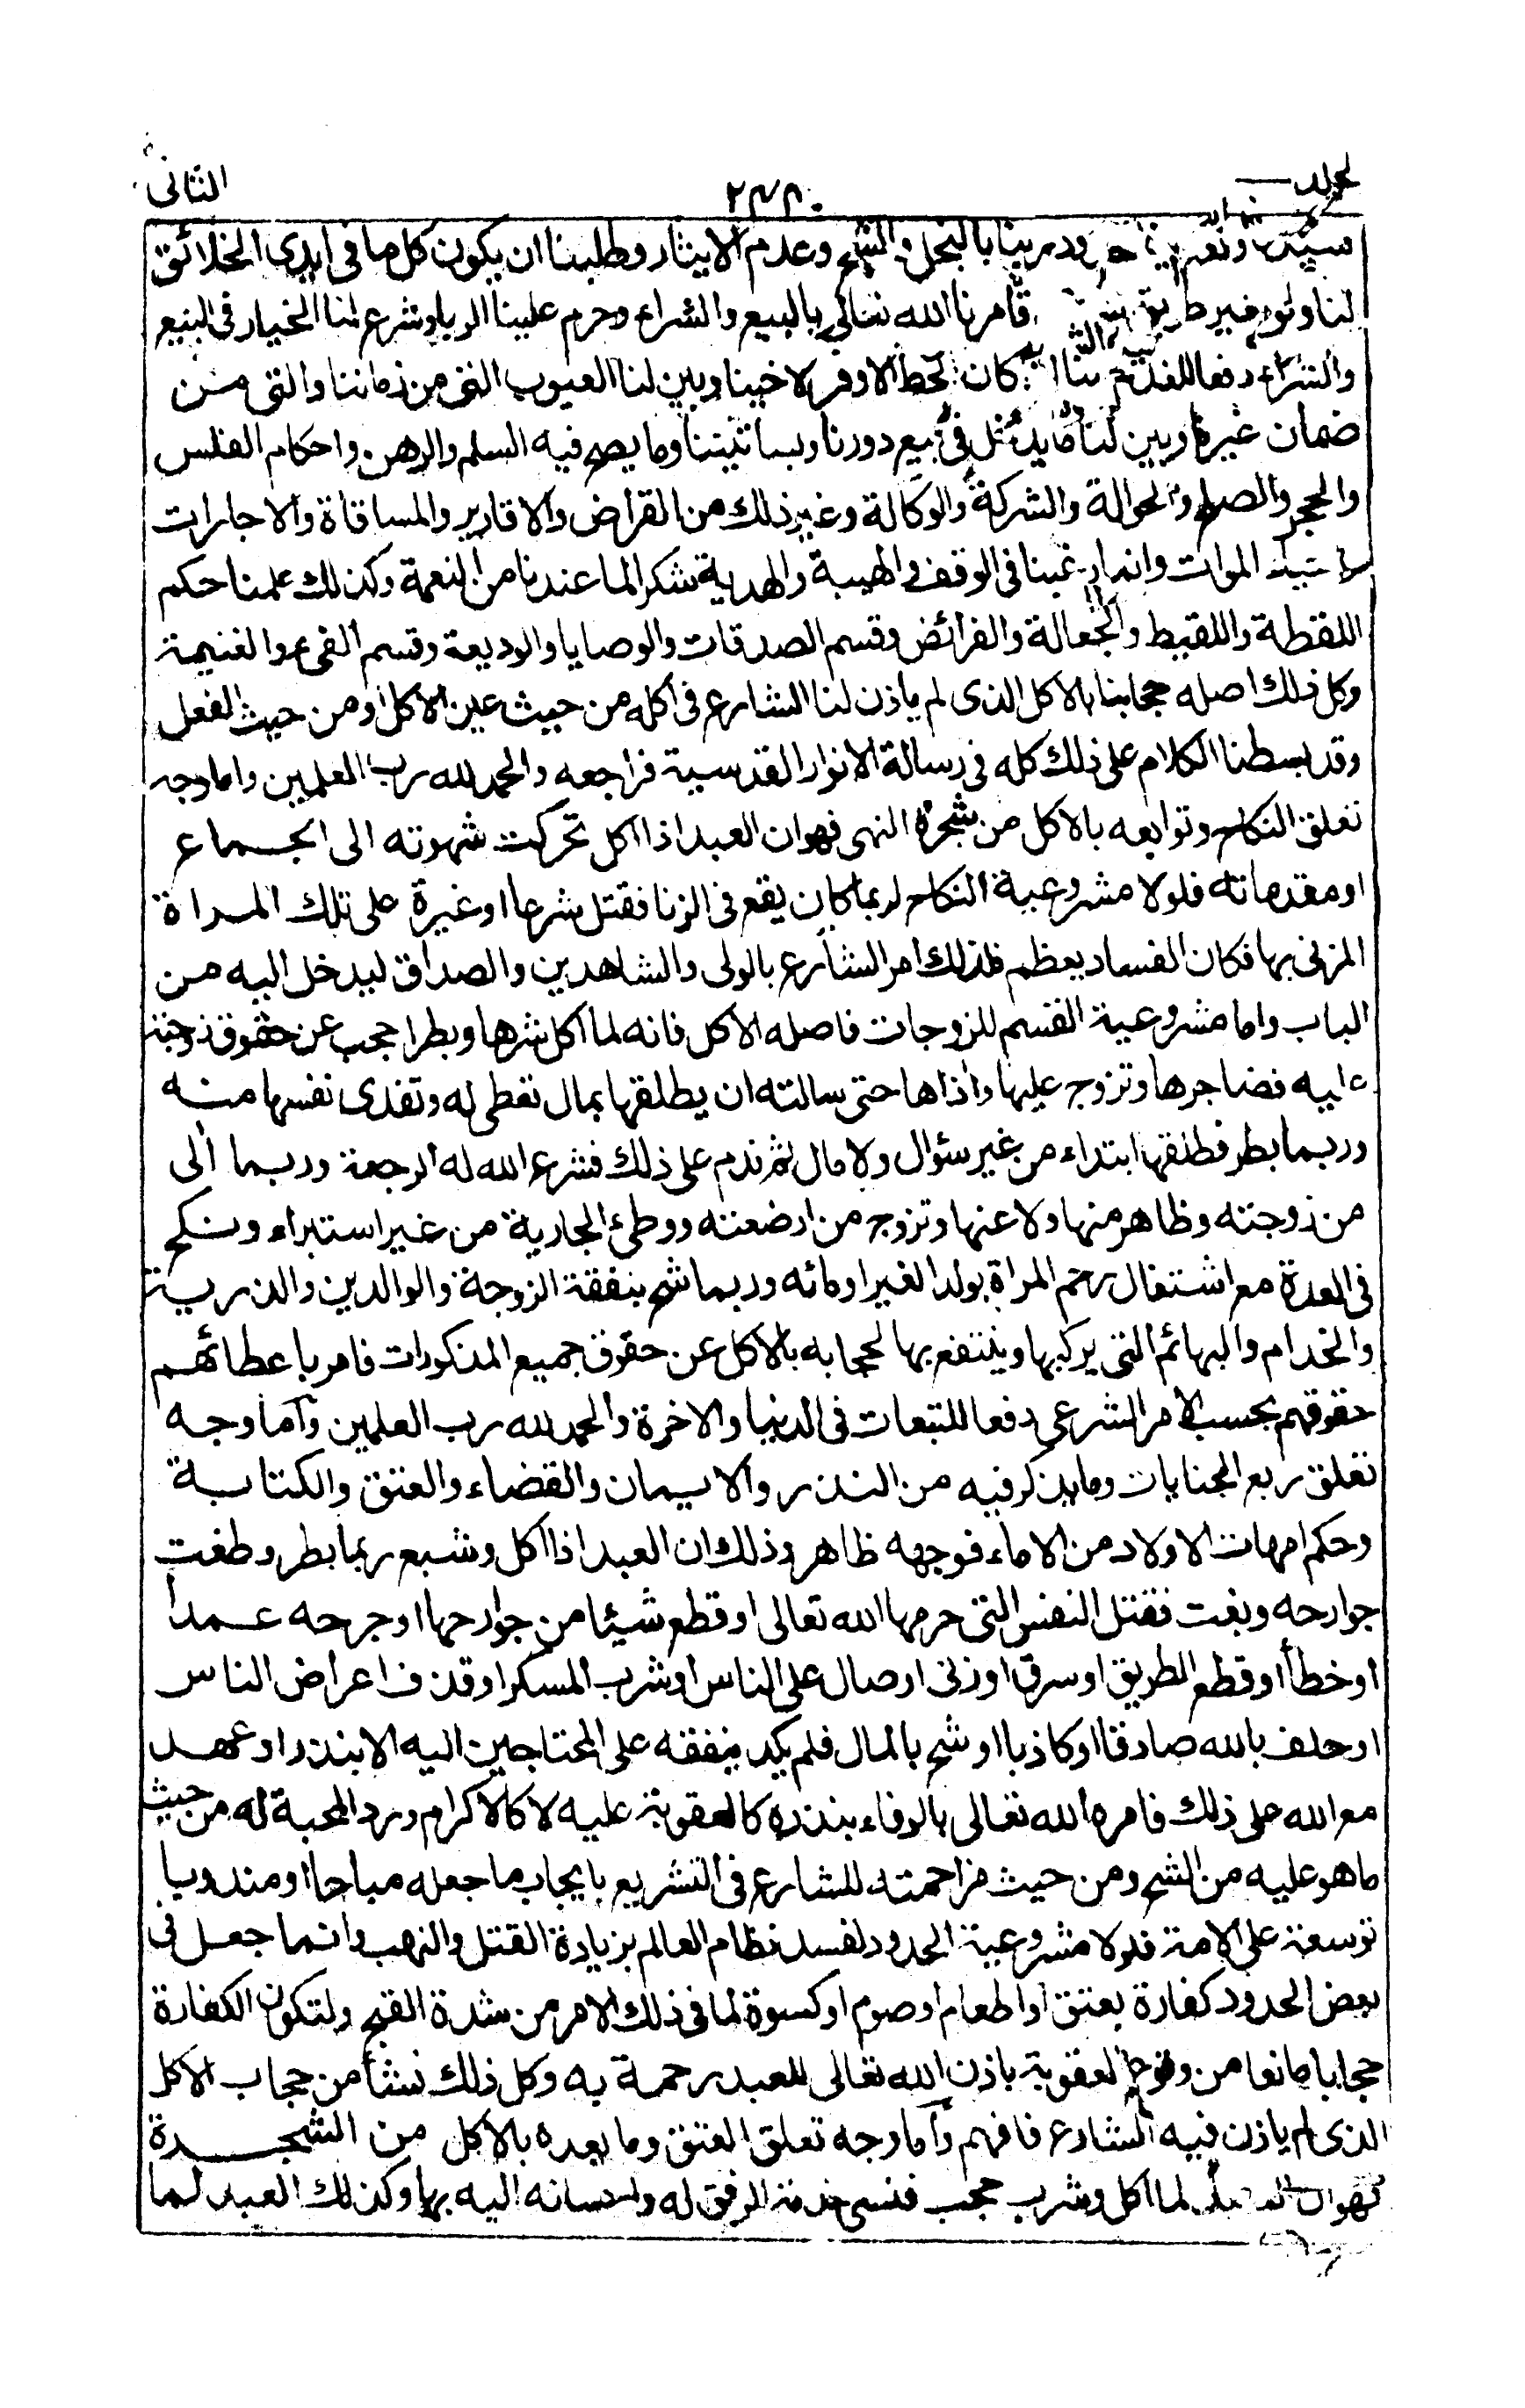 الثانى ٢٣٨ جلد
ودربينا بالبخل والشح وعدم الايثار وطلبنا ان يكون كل ما فى ايدى الخلائق
لنا ولو بغير طريق فامرنا الله تعالى بالبيع والشراء وحرم علينا الربا وشرع لنا الخيار فى البيع
والشراء دفعا للغدع كان الحظ الاوفر لاخينا وبين لنا العيوب التى من زماننا والتى من
ضمان غيرنا وبين لنا ما يدخل فى بيع دورنا وبساتيننا وما يصح فيه السلم والرهن واحكام الفلس
والحجر والصلح والحوالة والشركة والوكالة وغير ذلك من القراض والاقارير والمساقاة والاجارات
الموات وانما رغبنا فى الوقف والهبة والهدية شكرا لما عندنا من النعمة وكذلك علمنا حكم
اللقطة واللقيط والجعالة والفرائض وقسم الصدقات والوصايا والوديعة وقسم الفىء والغنيمة
وكل ذلك اصله حجابنا بالاكل الذى لم ياذن لنا الشارع فى اكله من حيث عين الاكل او من حيث الفعل
وقد بسطنا الكلام على ذلك كله فى رسالة الانوار القدسية فراجعه والحمد لله رب العلمين واما وجه
تعلق النكاح وتوابعه بالاكل من شجرة النهى فهو ان العبد اذا اكل تحركت شهوته الى الجماع
او مقدماته فلولا مشروعية النكاح لربما كان يقع فى الزنا فقتل شرعا او غيرة على تلك المراة
المزنى بها فكان الفساد يعظم فلذلك امر الشارع بالولى والشاهدين والصداق ليدخل اليه من
الباب واما مشروعية القسم للزوجات فاصله الاكل فانه لما اكل شرها وبطرا حجب عن حقوق زوجته
عليه فضاجرها وتزوج عليها واذاها حتى سالته ان يطلقها بمال تعطى له وتفدى نفسها منه
وربما بطر فطلقها ابتداء من غير سؤال ولا مال ثم ندم على ذلك فشرع الله له الرجعة وربما الى
من زوجته وظاهر منها ولاعنها وتزوج من ارضعته ووطئ الجارية من غير استبراء ونكح
فى العدة مع اشتغال رحم المراة بولد الغير او مائه وربما شح بنفقة الزوجة والوالدين والذرية
والخدام والبهائم التى يركبها وينتفع بها لحجابه بالاكل عن حقوق جميع المذكورات فامر باعطائهم
حقوقهم بحسب الامر الشرعى دفعا للتبعات فى الدنيا والاخرة والحمد لله رب العلمين واما وجه
تعلق ربع الجنايات وما يذكر فيه من النذر والايمان والقضاء والعتق والكتابة
وحكم امهات الاولاد من الاماء فوجهه ظاهر وذلك ان العبد اذا اكل وشبع ربما بطر وطغت
جوارحه وبغت فقتل النفس التى حرمها الله تعالى او قطع شيئا من جوارحها او جرحه عمدا
او خطأ او قطع الطريق او سرق او زنى او صال على الناس او شرب المسكر او قذف اعراض الناس
او حلف بالله صادقا او كاذبا او شح بالمال فلم يكد ينفقه على المحتاجين اليه الا بنذر او عهد
مع الله على ذلك فامره الله تعالى بالوفاء بنذره كالعقوبة عليه لا كالاكرام ورد المحبة له من حيث
ما هو عليه من الشح ومن حيث مزاحمته للشارع فى التشريع بايجاب ما جعله مباحا او مندوبا
توسعة على الامة فلولا مشروعية الحدود لفسد نظام العالم بزيادة القتل والنهب وانما جعل فى
بعض الحدود كفارة بعتق او اطعام او صوم او كسوة لما فى ذلك الامر من شدة القبح ولتكون الكفارة
حجابا مانعا من وقوع العقوبة باذن الله تعالى للعبد رحمة به وكل ذلك نشأ من حجاب الاكل
الذى لم ياذن فيه الشارع فافهم واما وجه تعلق العتق وما بعده بالاكل من الشجرة
فهو ان لما اكل وشرب حجب فنسى خدمة الرفيق له واحسانه اليه بها وكذلك العبد لما